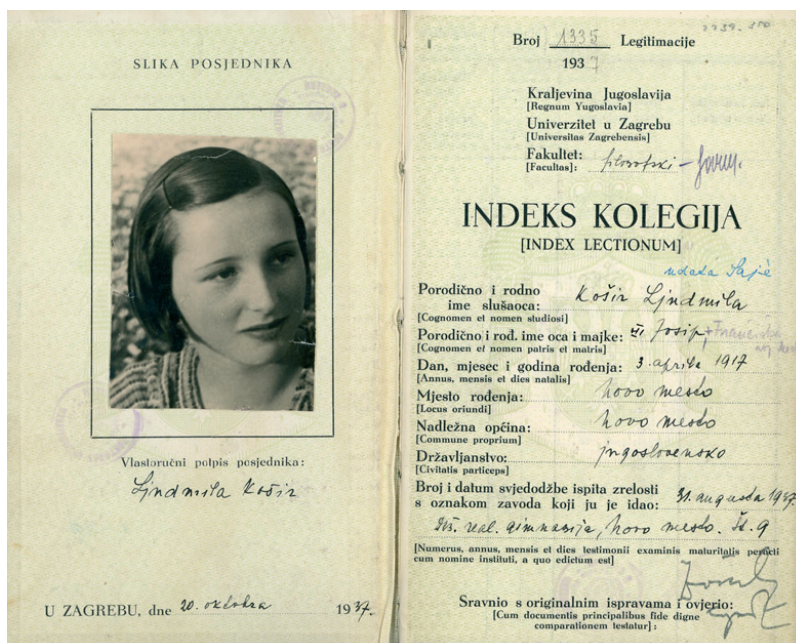 SLIKA POSJEDNIKA
Vlastoručni potpis posjednika:
Ljudmila Košir
U ZAGREBU, dne 20. oktobra 1937.
Broj 1335 Legitimacije
1937
Kraljevina Jugoslavija
[Regnum Yugoslavia]
Univerzitet u Zagrebu
[Universitas Zagrebensis]
Fakultet: filozofski -
[Facultas]:
INDEKS KOLEGIJA
[INDEX LECTIONUM]
udata
Porodično i rodno
ime slušaoca: Košir Ljudmila
[Cognomen et nomen studiosi]
Porodično i rođ. ime oca i majke: Josip, Franciska
[Cognomen et nomen patris et matris]
Dan, mjesec i godina rođenja: 3. aprila 1917
[Annus, mensis et dies natalis]
Mjesto rođenja: Novo mesto
[Locus oriundi]
Nadležna općina: Novo mesto
[Commune proprium]
Državljanstvo: jugoslovensko
[Civitatis particeps]
Broj i datum svjedodžbe ispita zrelosti
s oznakom zavoda koji ju je idao: 31. augusta 1937.
real. gimnazija, Novo mesto. Št. 9
[Numerus, annus, mensis et dies testimonii examinis maturitatis peracti
cum nomine instituti, a quo edictum est]
Sravnio s originalnim ispravama i ovjerio:
[Cum documentis principalibus fide digne
comparationem testatur]: